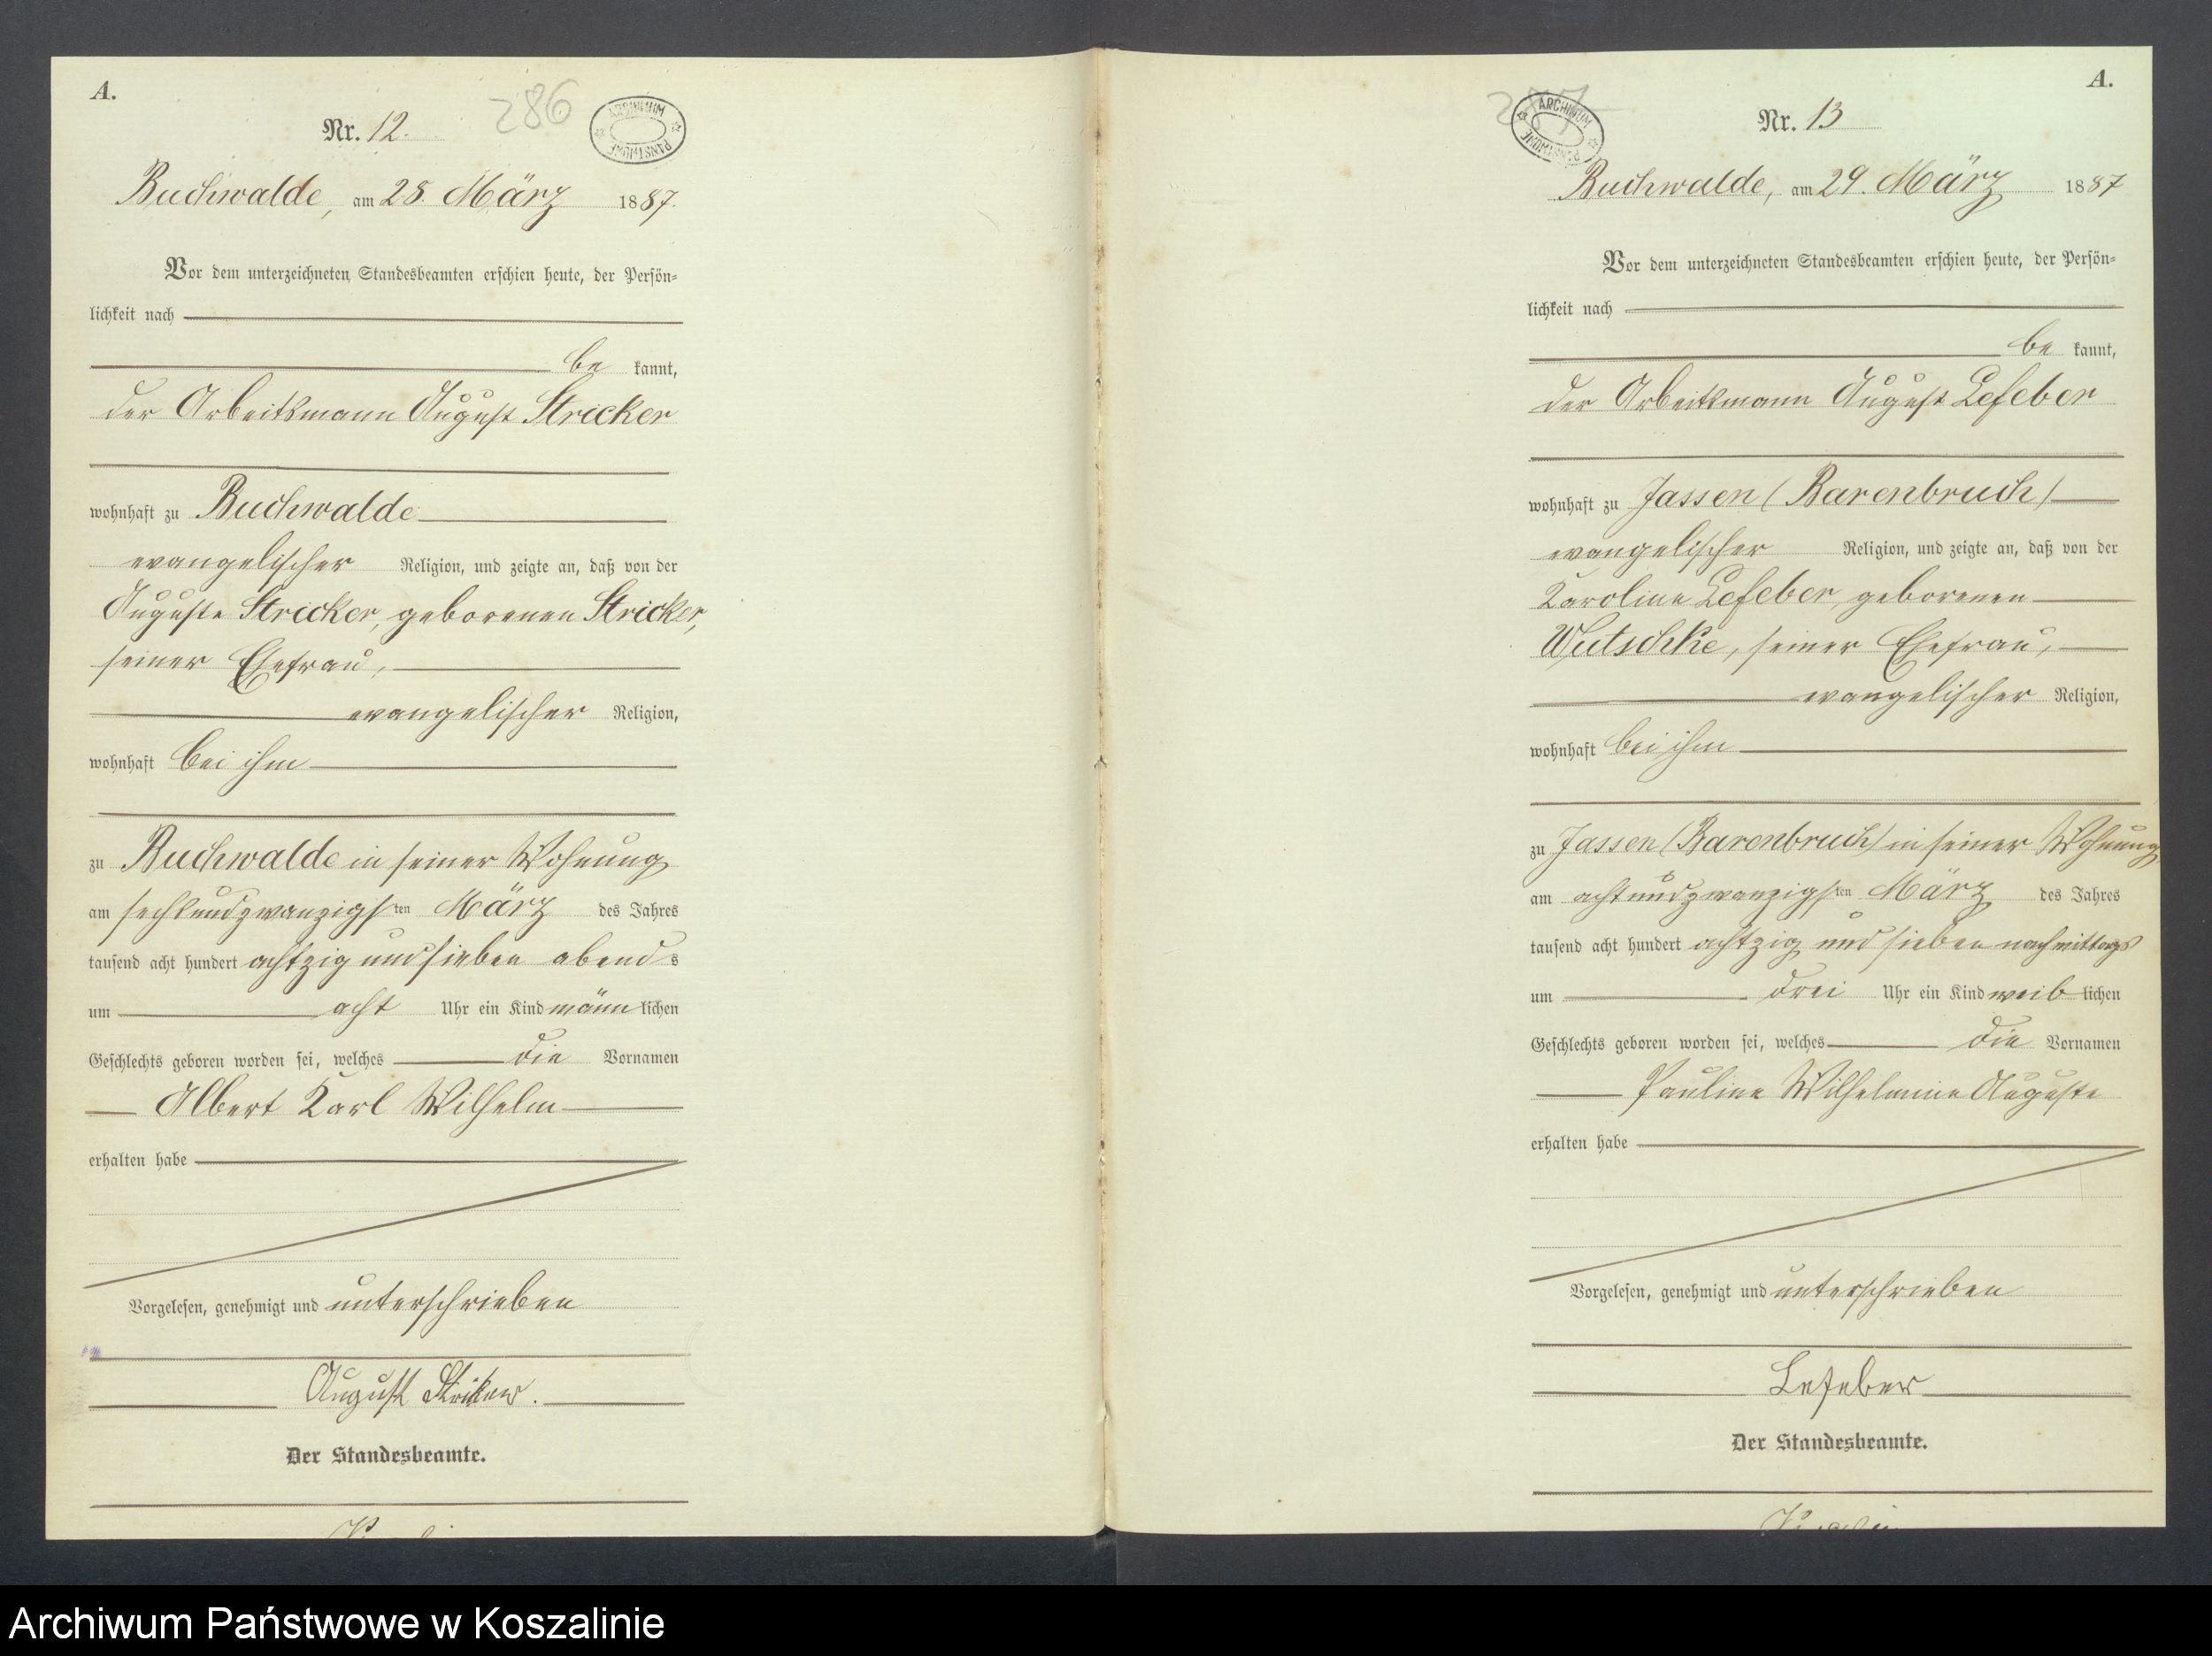 A.
286
Nr. 12.
ARCHIWUM PAŃSTWOWE
Buchwalde, am 28. März 1887.
Vor dem unterzeichneten Standesbeamten erschien heute, der Persön-
lichkeit nach
be kannt,
der Arbeitsmann August Stricker
wohnhaft zu Buchwalde
evangelischer Religion, und zeigte an, daß von der
Auguste Stricker, geborenen Stricker,
seiner Ehefrau,
evangelischer Religion,
wohnhaft bei ihm
zu Buchwalde in seiner Wohnung
am sechsundzwanzigsten März des Jahres
tausend acht hundert achtzig und sieben abends
um acht Uhr ein Kind männlichen
Geschlechts geboren worden sei, welches die Vornamen
Albert Karl Wilhelm
erhalten habe
Vorgelesen, genehmigt und unterschrieben
August Striker.
Der Standesbeamte.
A.
287
Nr. 13
ARCHIWUM PAŃSTWOWE
Buchwalde, am 29. März 1887
Vor dem unterzeichneten Standesbeamten erschien heute, der Persön-
lichkeit nach
be kannt,
der Arbeitsmann August Lefeber
wohnhaft zu Jassen (Barenbruch)
evangelischer Religion, und zeigte an, daß von der
Karoline Lefeber, geborenen
Wutschke, seiner Ehefrau,
evangelischer Religion,
wohnhaft bei ihm
zu Jassen (Barenbruch) in seiner Wohnung
am achtundzwanzigsten März des Jahres
tausend acht hundert achtzig und sieben nachmittags
um drei Uhr ein Kind weiblichen
Geschlechts geboren worden sei, welches die Vornamen
Pauline Wilhelmine Auguste
erhalten habe
Vorgelesen, genehmigt und unterschrieben
Lefeber
Der Standesbeamte.
Archiwum Państwowe w Koszalinie